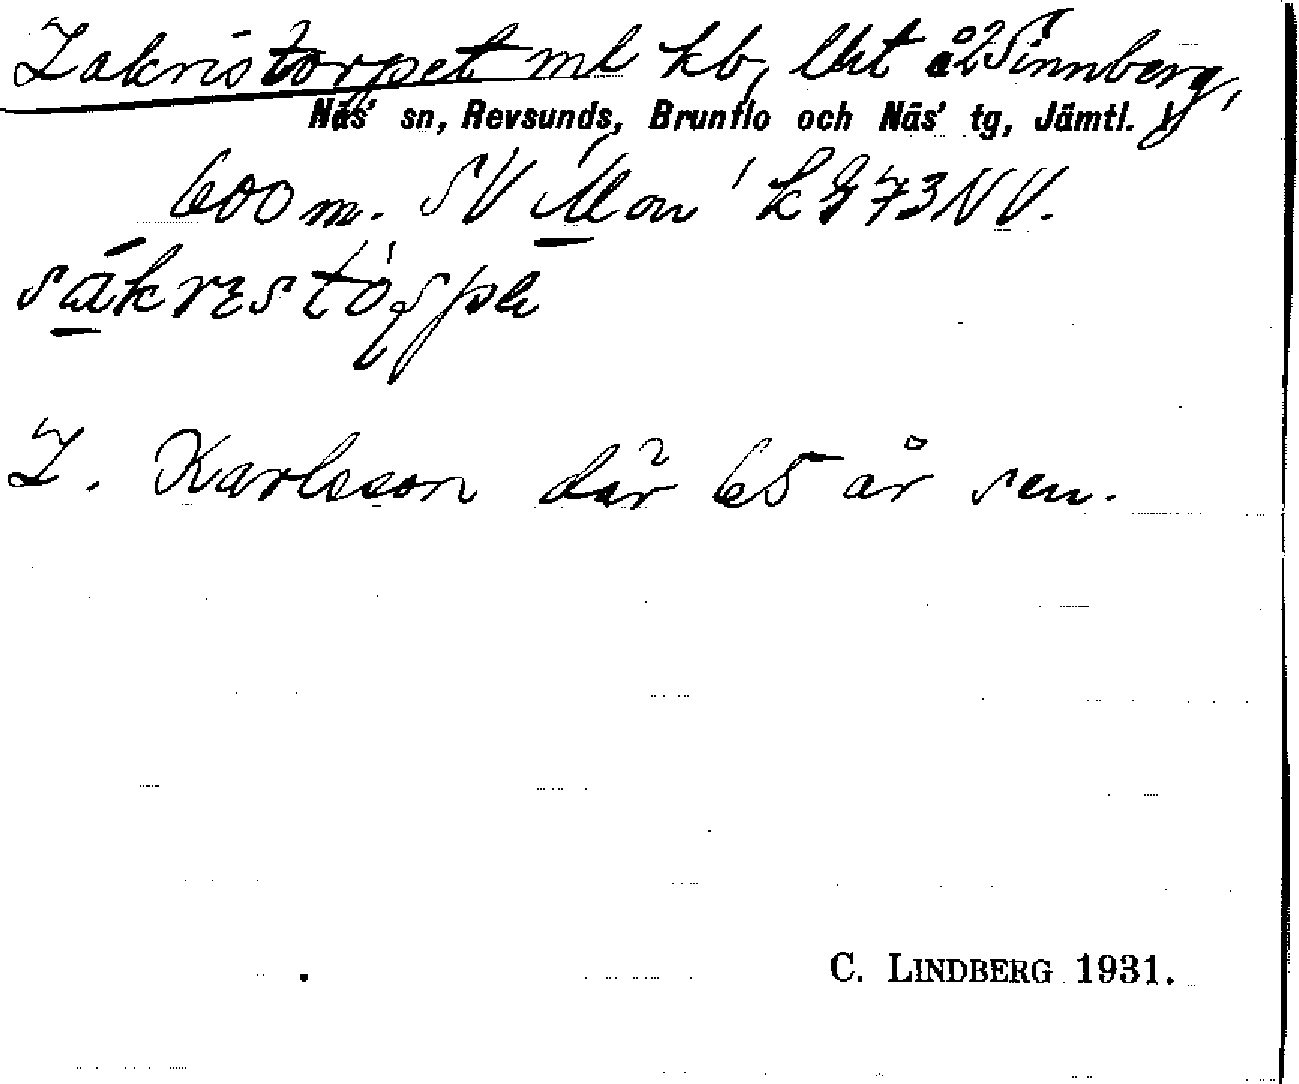 Zakristorpet ml kb, Utt å2 Sinnberg,
Näs' sn, Revsunds, Brunflo och Näs' tg, Jämtl. l.
600 m. SV Mon' kg 73 NV.
säkrestöpe
Z. Karlsson där 65 år sen.
C. LINDBERG 1931.